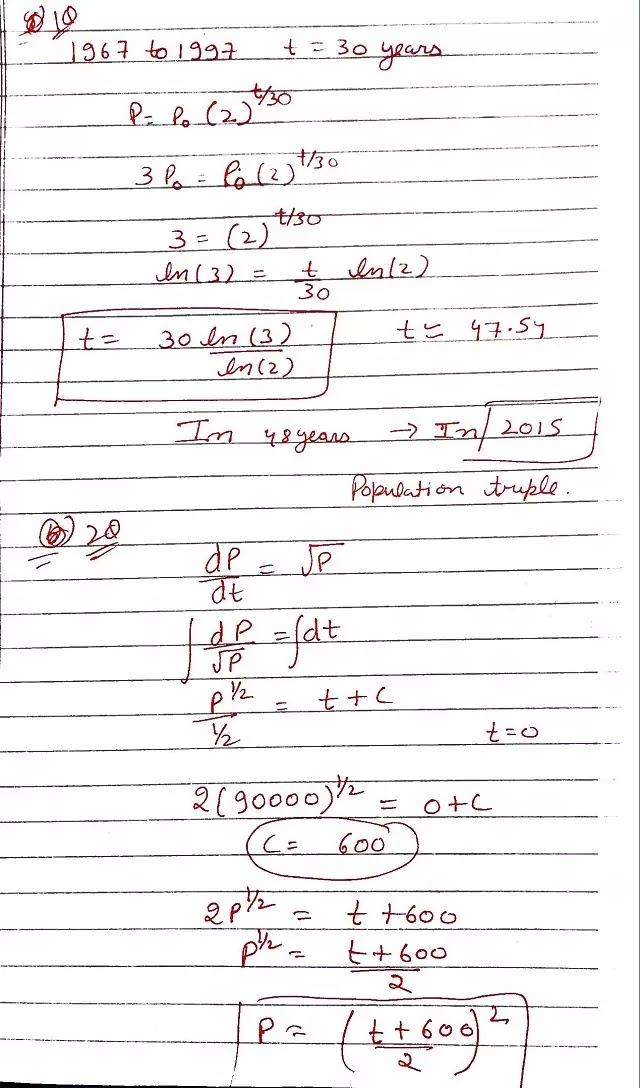 1Q
1967 to 1997 t = 30 years
P = P₀ (2)^t/30
3P₀ = P₀ (2)^t/30
3 = (2)^t/30
ln(3) = t/30 ln(2)
t = 30 ln(3)/ln(2) t ≃ 47.54
In 48 years → In 2015
Population truple.
2Q
dP/dt = √P
∫ dP/√P = ∫dt
P^1/2 / 1/2 = t + C
t = 0
2(90000)^1/2 = 0 + C
C = 600
2P^1/2 = t + 600
P^1/2 = t + 600/2
P = (t + 600/2)^2